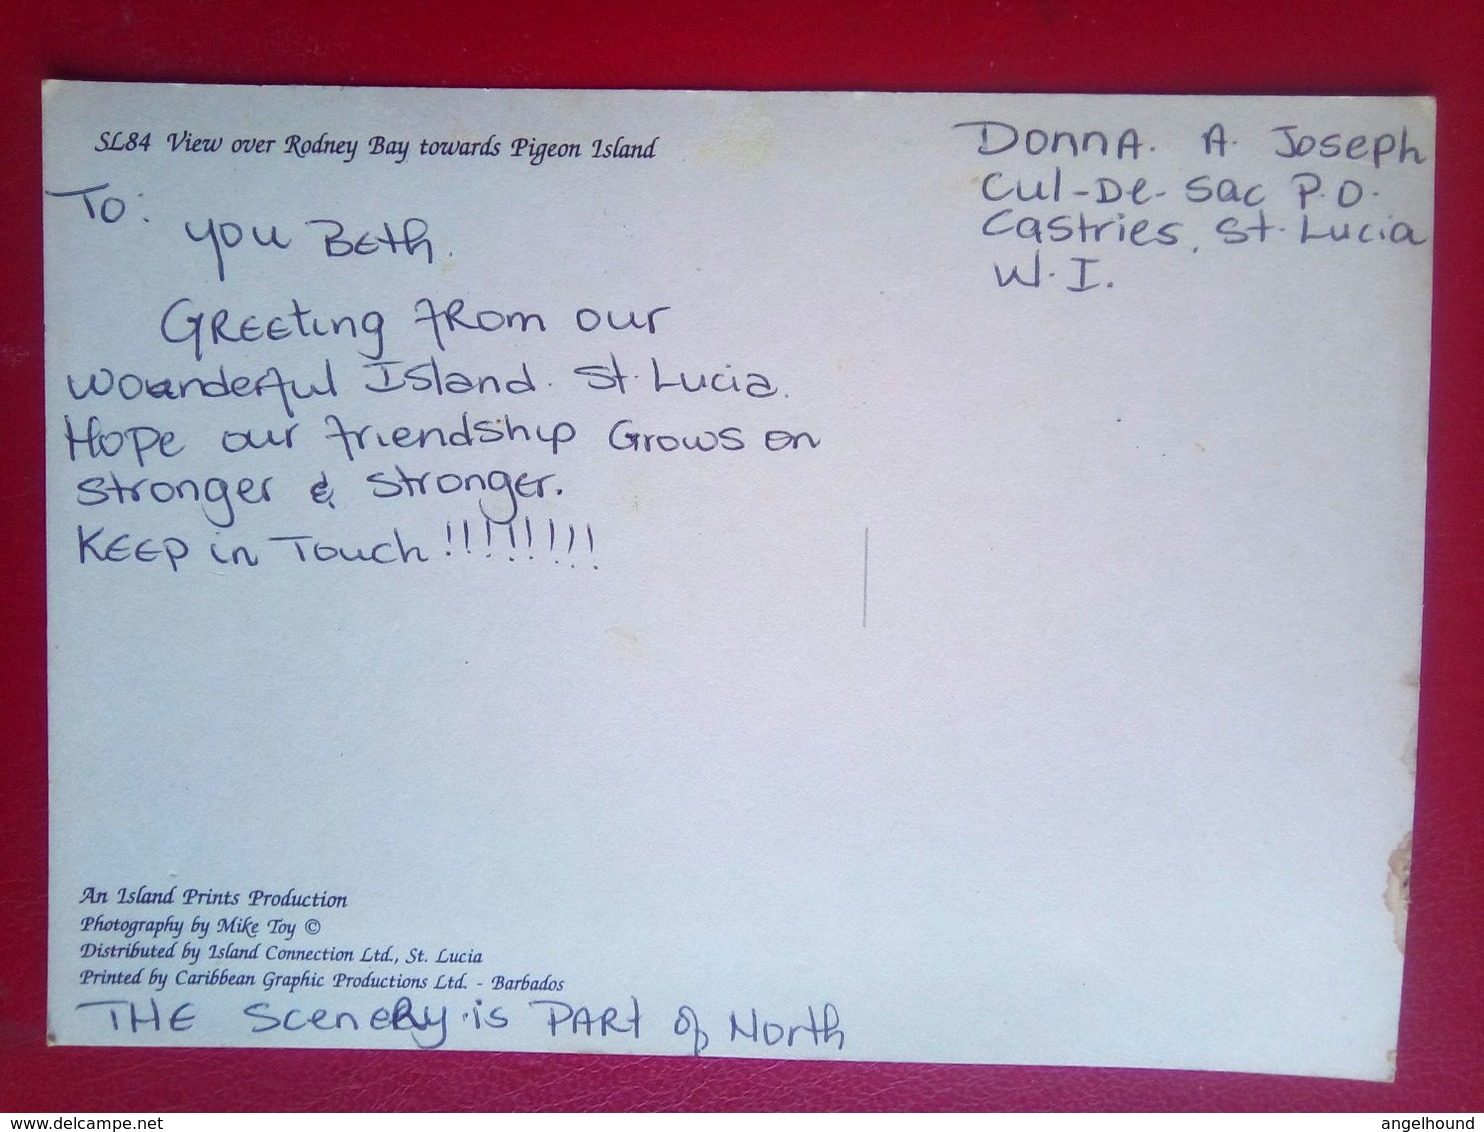 SL84 View over Rodney Bay towards Pigeon Island
To:
you Beth.
Greeting from our
wounderful Island. St. Lucia.
Hope our friendship Grows on
stronger & stronger.
KEEP in Touch !!!!!!!!
Donna. A. Joseph
Cul-De-Sac P.O.
Castries, St. Lucia
W.I.
An Island Prints Production
Photography by Mike Toy ©
Distributed by Island Connection Ltd., St. Lucia
Printed by Caribbean Graphic Productions Ltd. - Barbados
THE Scenery is PART of North
delcampe.net
angelhound